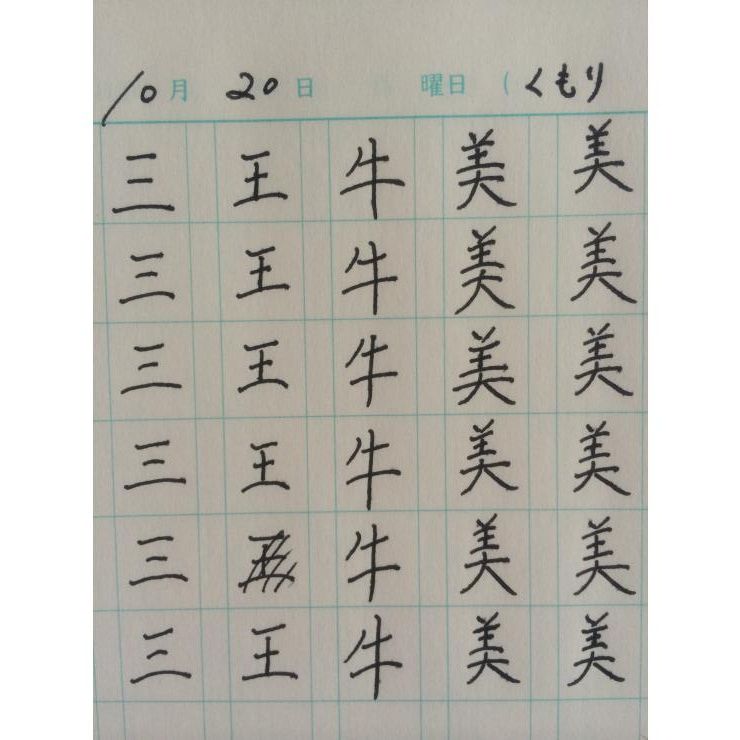 10月 20日 曜日 ( くもり
三 王 牛 美 美
三 王 牛 美 美
三 王 牛 美 美
三 王 牛 美 美
三 牛 美 美
三 王 牛 美 美